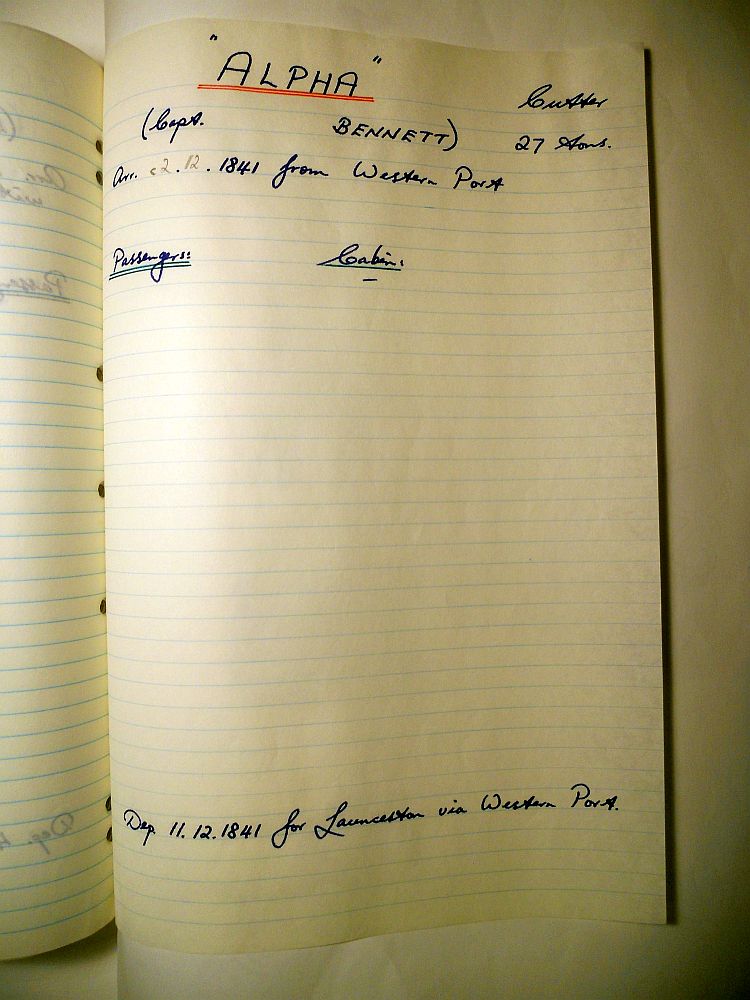 "ALPHA"
Cutter
(Capt. BENNETT) 27 tons.
Arr. c2.12.1841 from Western Port
Passengers: Cabin:
–
Dep. 11.12.1841 for Launceston via Western Port.